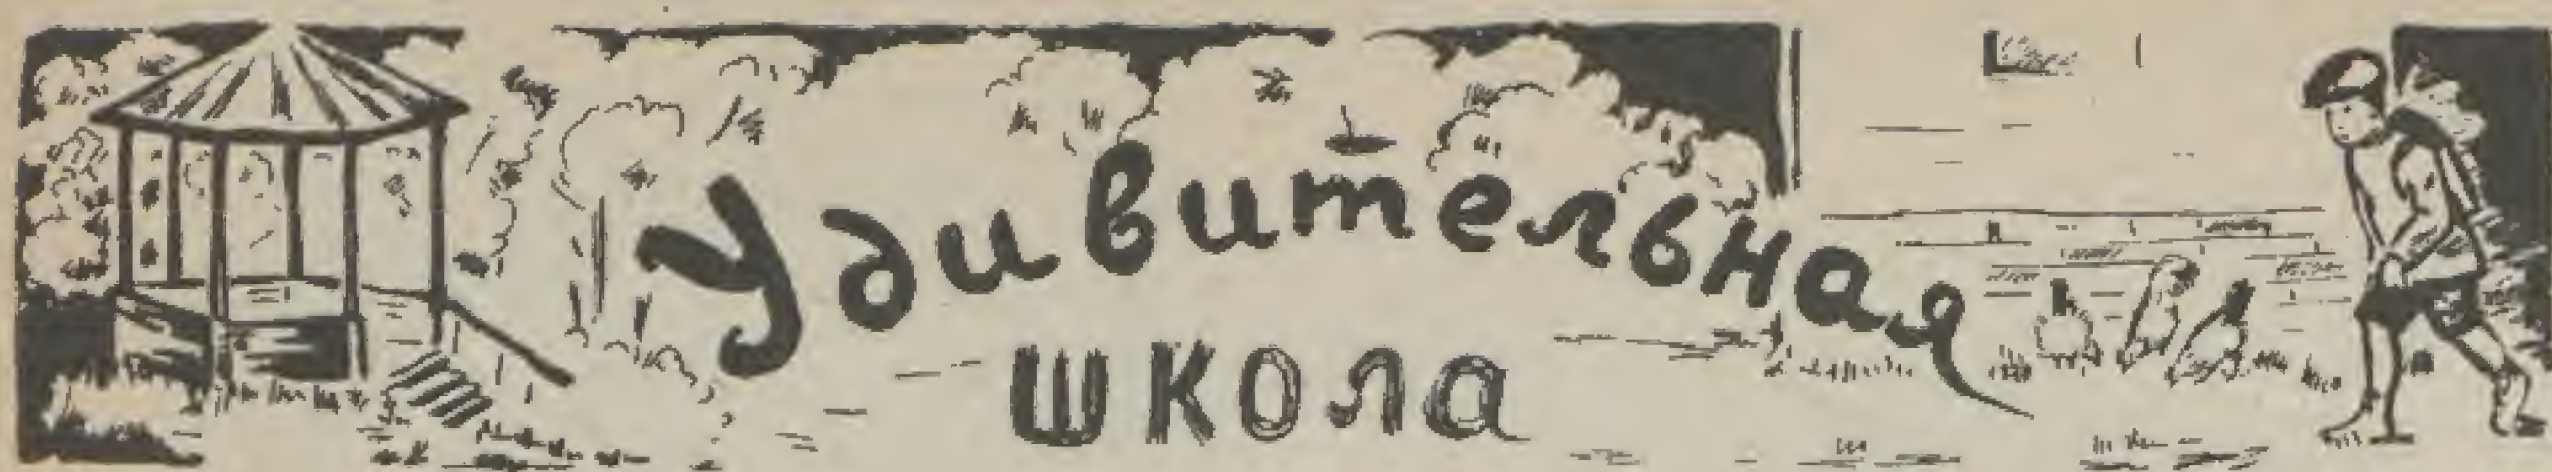 Удивительная
школа